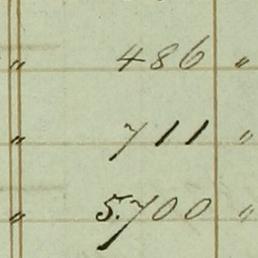 " 486 "
" 711 "
" 5.700 "